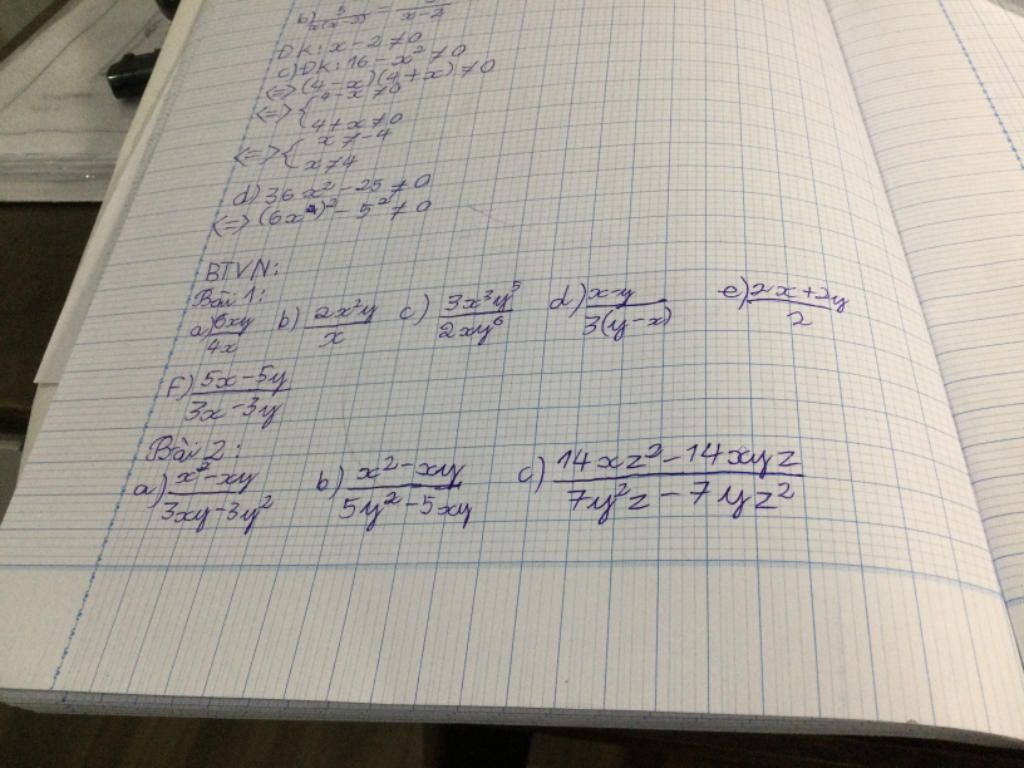 b) 5/x(x-3) = /x-2
ĐK: x-2≠0
c) ĐK: 16-x²≠0
<=> (4-x)(4+x)≠0
<=> { 4-x≠0
4+x≠0
<=> { x≠-4
x≠4
d) 36x²-25≠0
<=> (6x)²-5²≠0
BTVN:
Bài 1:
a) 6xy/4x b) 2x²y/x c) 3x³y⁵/2xy⁶ d) x-y/3(y-x) e) 2x+2y/2
f) 5x-5y/3x-3y
Bài 2:
a) x²-xy/3xy-3y² b) x²-xy/5y²-5xy c) 14xz²-14xyz/7y²z-7yz²